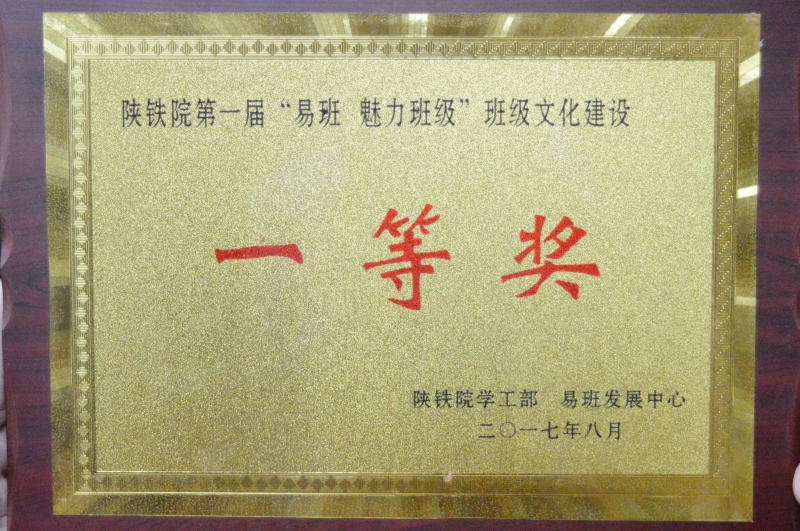 陕铁院第一届“易班 魅力班级”班级文化建设
一等奖
陕铁院学工部 易班发展中心
二〇一七年八月